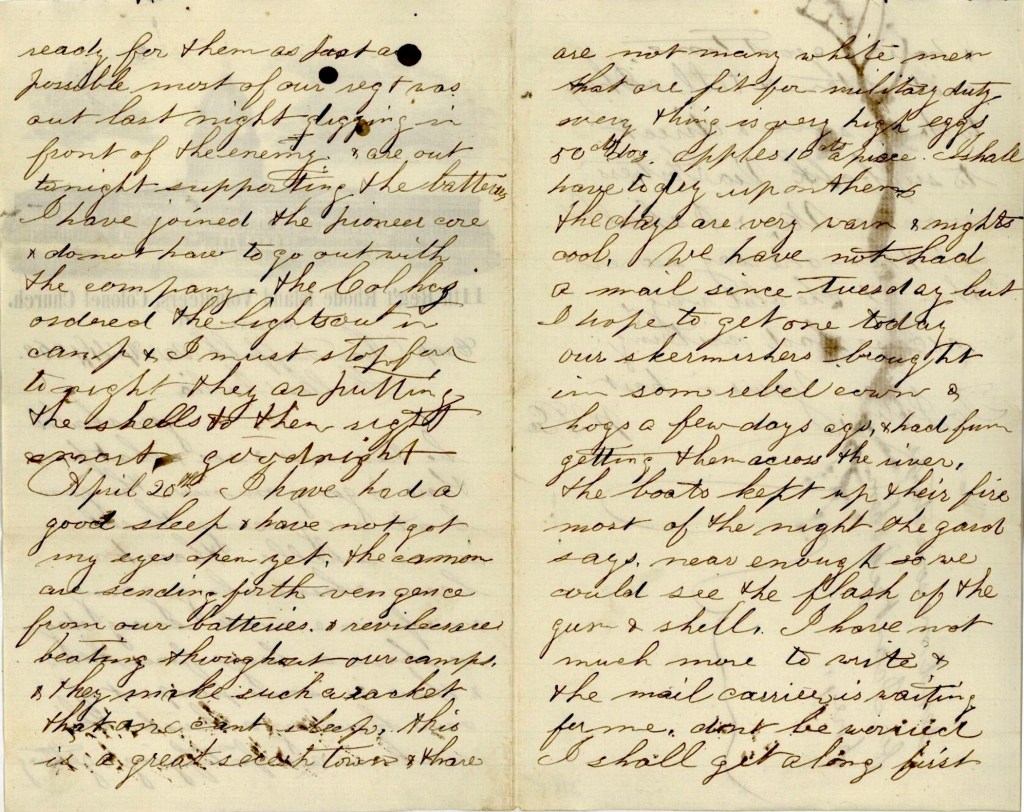 ready for them as fast as
possible most of our regt was
out last night digging in
front of the enemy & are out
tonight supporting the batteries
I have joined the pioneer core
& do not have to go out with
the company. the Col has
ordered the lights out in
camp & I must stop for
tonight they ar putting
the shells to them right
smart. goodnight
April 20th I have had a
good sleep & have not got
my eyes open yet. the cannon
are sending forth vengence
from our batteries. & revilees are
beating throughout our camps.
& they make such a racket
that one cant sleep. this
is a great secesh town & thare
are not many white men
that are fit for military duty
every thing is very high eggs
50 cts doz. apples 10 cts apiece. I shall
have to dry up on them
the days are very warm & nights
cool. We have not had
a mail since tuesday but
I hope to get one today
our skermishers brought
in som rebel cown &
hogs a few days ago, & had fun
getting them across the river.
the boats kept up their fire
most of the night the gard
says. near enough so we
could see the flash of the
gun & shell. I have not
much more to write &
the mail carrier is waiting
for me. dont be worried
I shall get along first
11th Reg't Rhode Island Volunteers, Colonel Church.